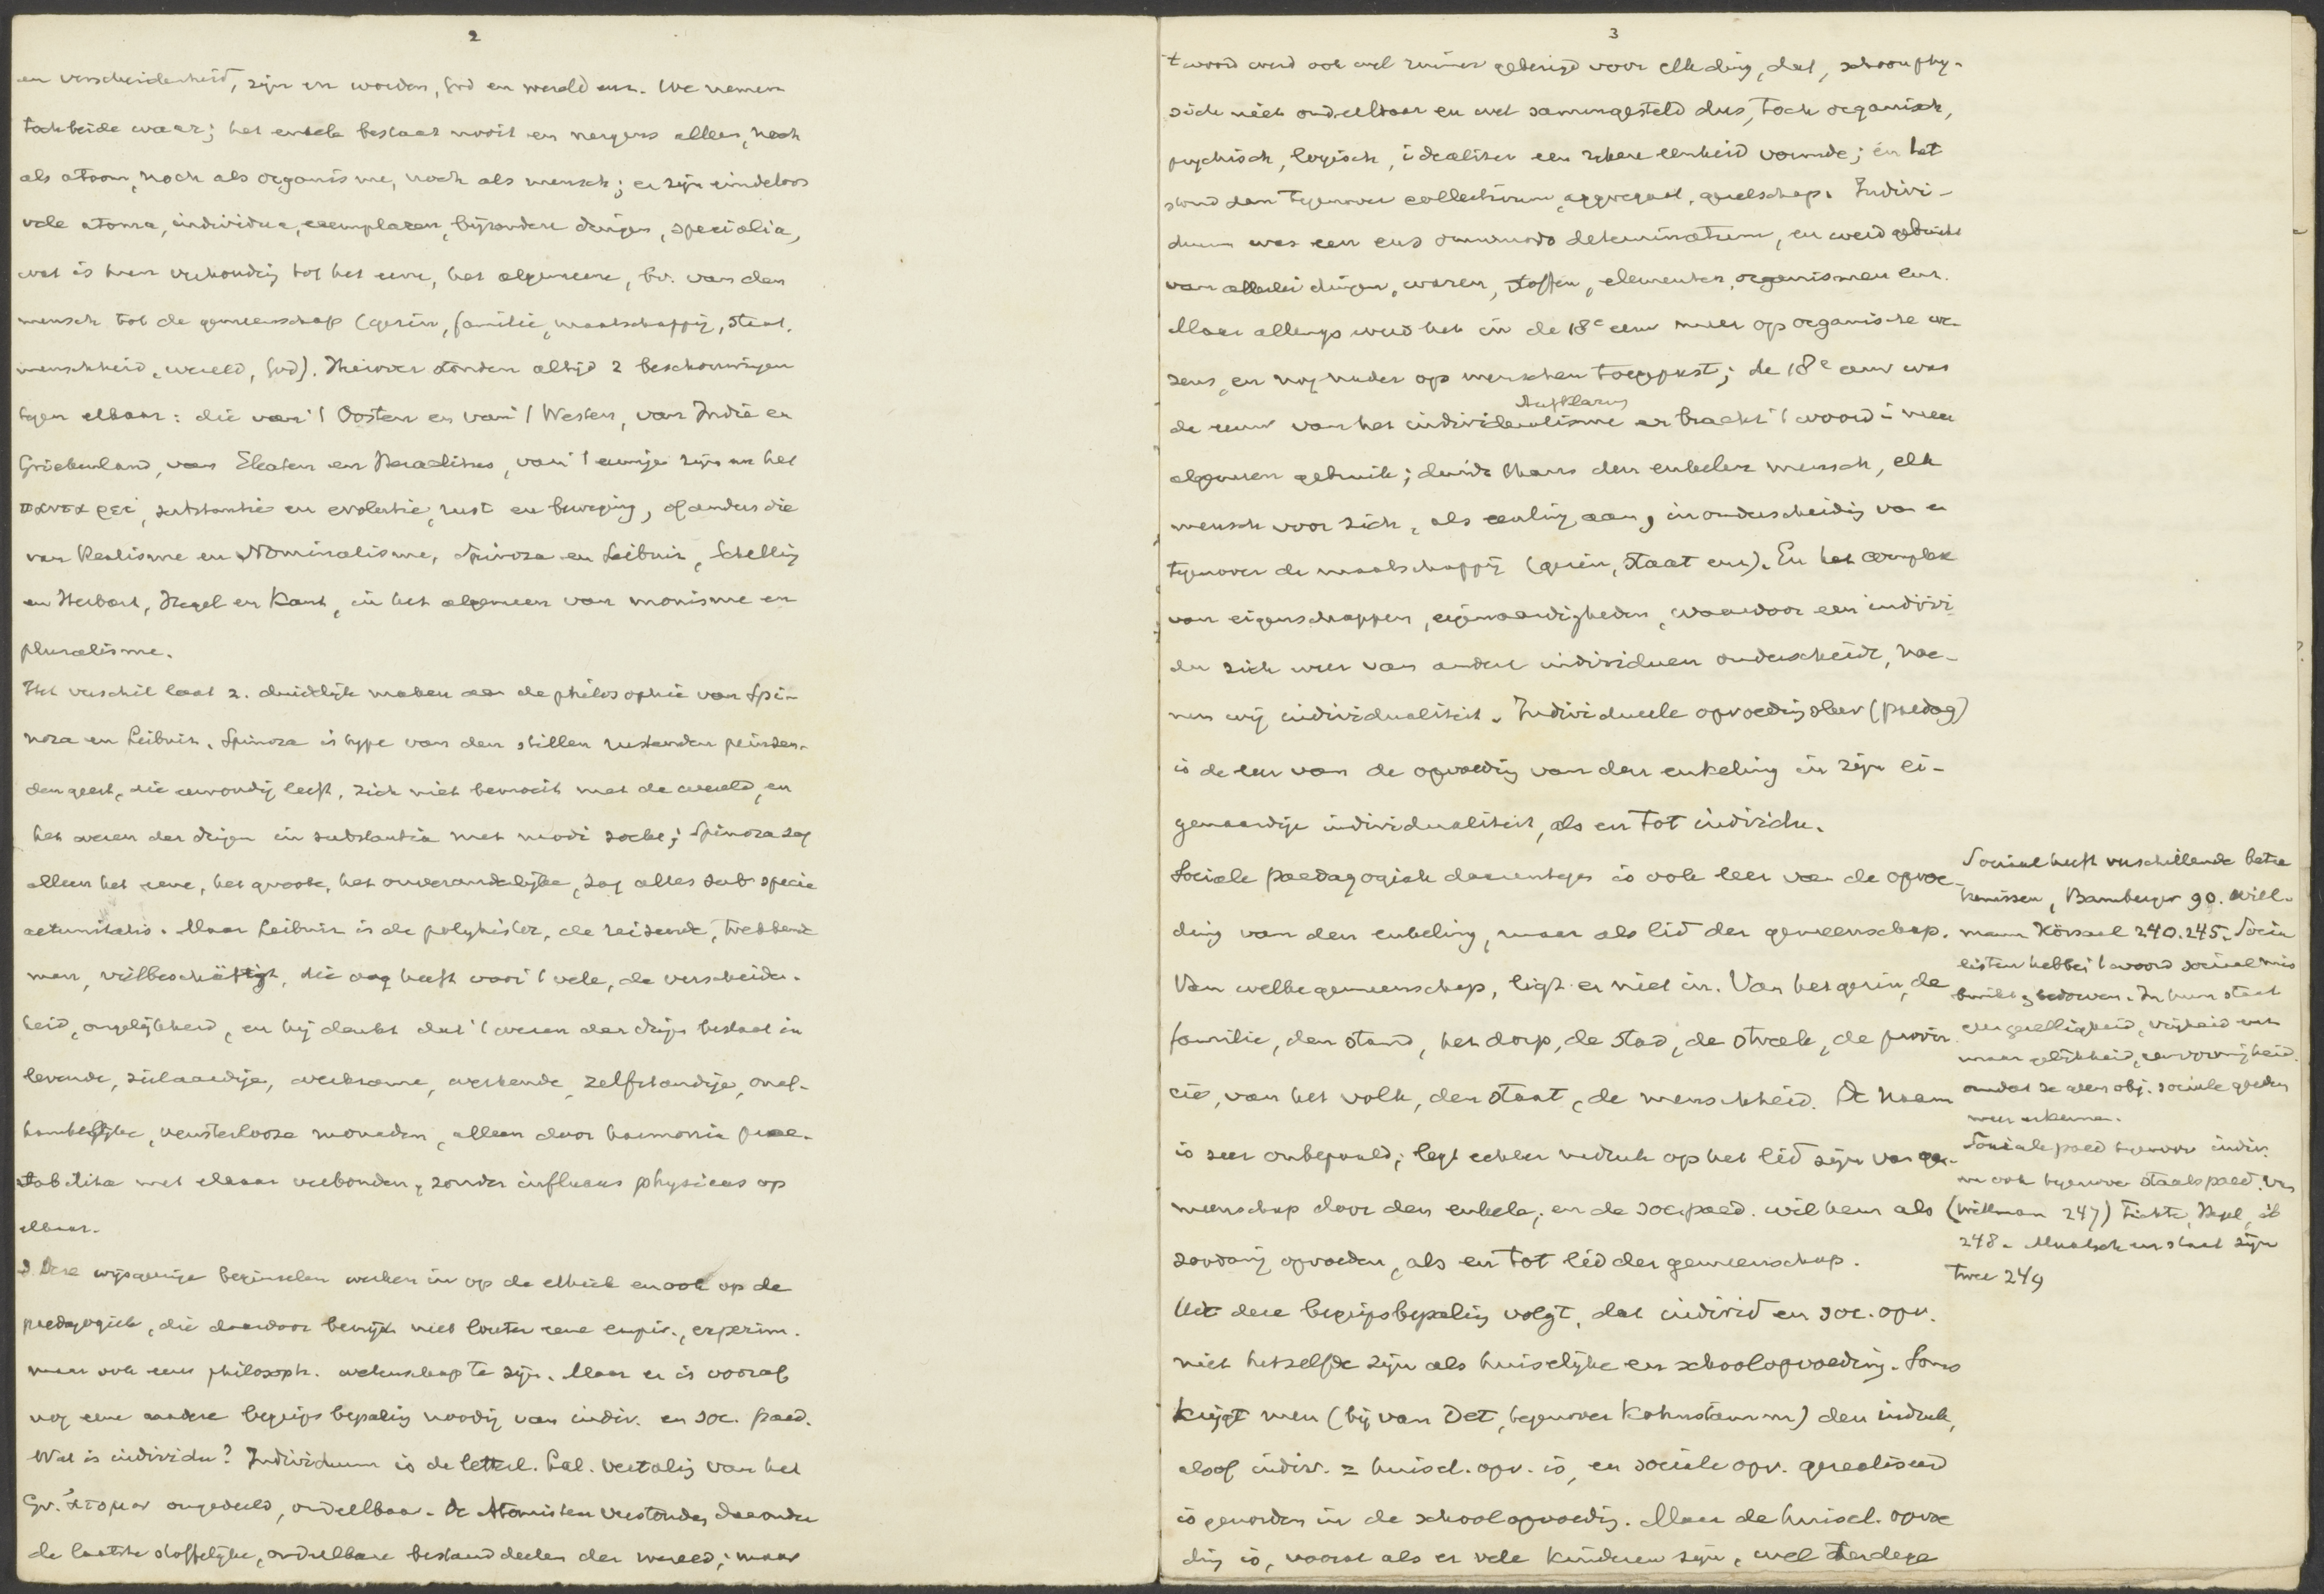 2
en verscheidenheid, zijn en worden, God en wereld enz. We nemen
toch beide waar; het enkele bestaat nooit en nergens alleen, noch
als atoom, noch als organisme, noch als mensch; er zijn eindeloos
vele atoma, individua, exemplaren, bijzondere dingen, specialia,
wat is hun verhouding tot het eene, het algemeene, bv. van den
mensch tot de gemeenschap (gezin, familie, maatschappij, staat,
menschheid, wereld, God). Hierover stonden altijd 2 beschouwingen
tegen elkaar: die van 't Oosten en van 't Westen, van Indië en
Griekenland, van Eleaten en Heraclitus, van 't eeuwige zijn en het
παντα ρει, substantie en evolutie, rust en beweging, of anders die
van Realisme en Nominalisme, Spinoza en Leibniz, Schelling
en Herbart, Hegel en Kant, in het algemeen van monisme en
pluralisme.
Het verschil laat z. duidelijk maken aan de philosophie van Spi-
noza en Leibniz. Spinoza is type van den stillen rustenden peinzen-
den geest, die eenvoudig leeft, zich niet bemoeit met de wereld, en
het wezen der dingen in substantia met modi zocht; Spinoza zag
alleen het eene, het groote, het onveranderlijke, zag alles sub specie
aeternitatis. Maar Leibniz is de polyhistor, de reizende, trekkende
man, vielbeschäftigt, die oog heeft voor 't vele, de verscheiden-
heid, ongelijkheid, en hij denkt dat 't wezen der dingen bestaat in
levende, zielaardige, werkzame, werkende, zelfstandige, onaf-
hankelijke, vensterlooze monaden, alleen door harmonia prae-
stabilita met elkaar verbonden, zonder influxus physicus op
elkaar.
3. Deze wijsgeerige beginselen werken in op de ethiek en ook op de
paedagogiek, die daardoor bewijst niet louter eene empir., experim.
maar ook eene philosoph. wetenschap te zijn. Maar er is vooraf
nog eene nadere begripsbepaling noodig van indiv. en soc. paed.
Wat is individu? Individuum is de letterl. Lat. vertaling van het
Gr. ἄτομον ongedeeld, ondeelbaar. De Atomisten verstonden daaronder
de laatste stoffelijke, ondeelbare bestanddeelen der wereld; maar
3
't woord werd ook wel ruimer gebezigd voor elk ding, dat, schoon phy-
sich niet ondeelbaar en wel samengesteld dus, toch organisch,
psychisch, logisch, idealiter een zekere eenheid vormde; en het
stond dan tegenover collectivum, aggregaat, gezelschap. Indivi-
duum was een ens omnimodo determinatum, en werd gebruikt
van allerlei dingen, waren, stoffen, elementen, organismen enz.
Maar allengs werd het in de 18e eeuw meer op organische we-
zens, en nog nader op menschen toegepast; de 18e eeuw was
Aufklärung
de eeuw van het individualisme en bracht 't woord in meer
algemeen gebruik; duidt thans den enkelen mensch, elk
mensch voor zich, als eenling aan, in onderscheiding van en
tegenover de maatschappij (gezin, staat enz). En het complex
van eigenschappen, eigenaardigheden, waardoor een indivi-
du zich weer van andere individuen onderscheidt, noe-
men wij individualiteit. Individueele opvoedingsleer (paedag)
is de leer van de opvoeding van den enkeling in zijn ei-
genaardige individualiteit, als en tot individu.
Sociale paedagogiek daarentegen is ook leer van de opvoe-
ding van den enkeling, maar als lid der gemeenschap.
Van welke gemeenschap, ligt er niet in. Van het gezin, de
familie, den stand, het dorp, de stad, de streek, de provin-
cie, van het volk, den staat, de menschheid. De naam
is zeer onbepaald; legt echter nadruk op het lid zijn van ge-
meenschap door den enkele; en de soc. paed. wil hem als
zoodanig opvoeden, als en tot lid der gemeenschap.
Uit deze begripsbepaling volgt, dat individ en soc. opv.
niet hetzelfde zijn als huiselijke en schoolopvoeding. Soms
krijgt men (bij van Det, tegenover Kohnstamm) den indruk,
alsof indiv. = huisel. opv. is, en sociale opv. gerealiseerd
is geworden in de schoolopvoeding. Maar de huisel. opvoe
ding is, vooral als er vele kinderen zijn, wel terdege
Sociaal heeft verschillende betee
kenissen, Bamberger 90. Will-
mann 240. 245. Socia
listen hebben 't woord sociaal mis
bruikt, bedorven. In hun staat
geen gezelligheid, vrijheid enz
maar gelijkheid, eenvormigheid.
omdat ze geen obj. sociale goederen
meer erkennen.
Sociale paed tegenover indiv.
maar ook tegenover staatspaed. van
(Willmann 247) Fichte, Hegel, ib
248. Maatsch en staat zijn
twee 249